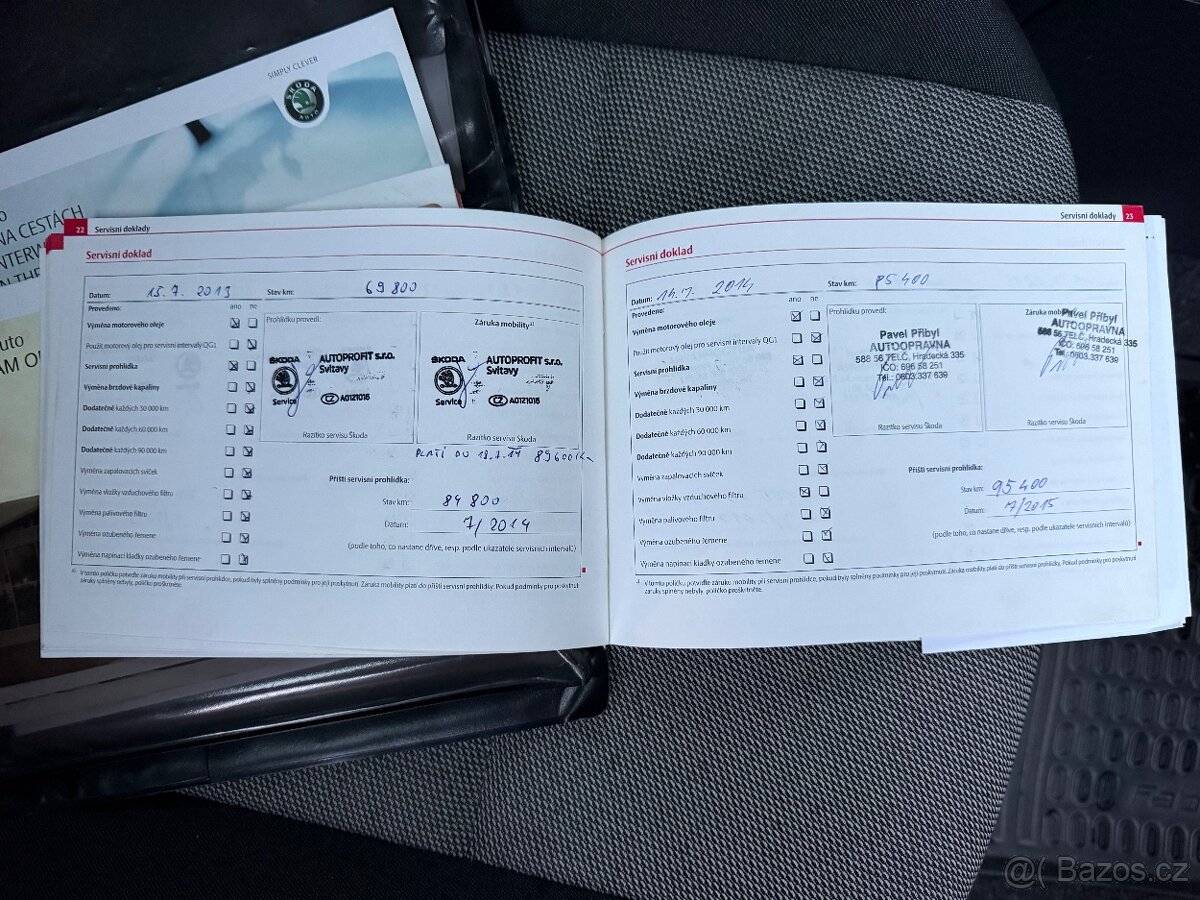 SIMPLY CLEVER
ŠKODA
AUTO
NA CESTÁCH
22 Servisní doklady
Servisní doklad
Datum: 15.7. 2013 Stav km: 69 800
Provedeno: ano ne
Výměna motorového oleje
Použit motorový olej pro servisní intervaly QG1
Servisní prohlídka
Výměna brzdové kapaliny
Dodatečně každých 30 000 km
Dodatečně každých 60 000 km
Dodatečně každých 90 000 km
Výměna zapalovacích svíček
Výměna vložky vzduchového filtru
Výměna palivového filtru
Výměna ozubeného řemene
Výměna napínací kladky ozubeného řemene
Prohlídku provedl:
ŠKODA
Service
AUTOPROFIT s.r.o.
Svitavy
CZ A0121016
Razítko servisu Škoda
Záruka mobility a)
ŠKODA
Service
AUTOPROFIT s.r.o.
Svitavy
CZ A0121016
Razítko servisu Škoda
PLATÍ DO 89600
Příští servisní prohlídka:
Stav km: 84 800
Datum: 7/2014
(podle toho, co nastane dříve, resp. podle ukazatele servisních intervalů)
a) V tomto políčku potvrďte záruku mobility při servisní prohlídce, pokud byly splněny podmínky pro její poskytnutí. Záruka mobility platí do příští servisní prohlídky. Pokud podmínky pro poskytnutí
záruky splněny nebyly, políčko proškrtněte.
Servisní doklady 23
Servisní doklad
Datum: 2014 Stav km: 85 400
Provedeno: ano ne
Výměna motorového oleje
Použit motorový olej pro servisní intervaly QG1
Servisní prohlídka
Výměna brzdové kapaliny
Dodatečně každých 30 000 km
Dodatečně každých 60 000 km
Dodatečně každých 90 000 km
Výměna zapalovacích svíček
Výměna vložky vzduchového filtru
Výměna palivového filtru
Výměna ozubeného řemene
Výměna napínací kladky ozubeného řemene
Prohlídku provedl:
Pavel Přibyl
AUTOOPRAVNA
588 56 TELČ, Hradecká 335
IČO: 696 58 251
Tel.: 0603.337 639
Razítko servisu Škoda
Záruka
Pavel Přibyl
AUTOOPRAVNA
588 56 TELČ, Hradecká 335
IČO: 696 58 251
Tel.: 0603.337 639
Razítko servisu Škoda
Příští servisní prohlídka:
Stav km: 95 400
Datum: 7/2015
(podle toho, co nastane dříve, resp. podle ukazatele servisních intervalů)
a) V tomto políčku potvrďte záruku mobility při servisní prohlídce, pokud byly splněny podmínky pro její poskytnutí. Záruka mobility platí do příští servisní prohlídky. Pokud podmínky pro poskytnutí
záruky splněny nebyly, políčko proškrtněte.
Bazos.cz